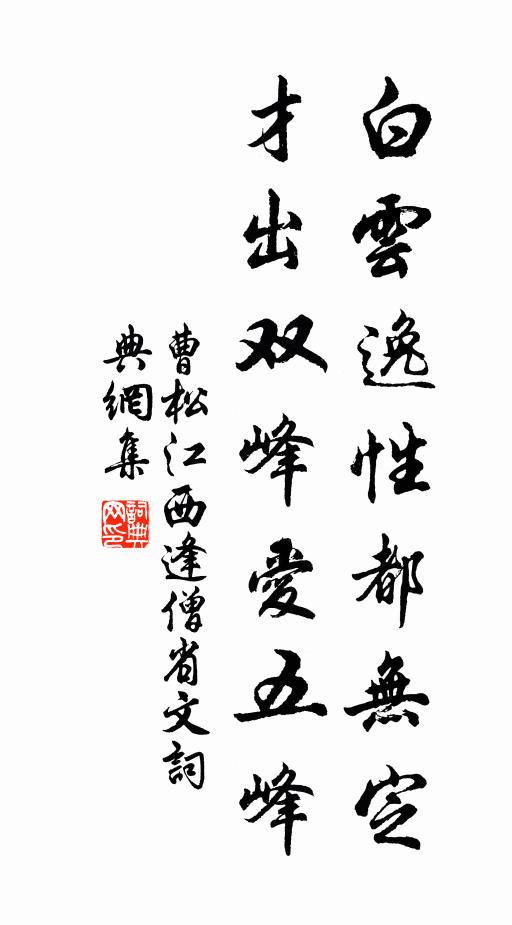 白雲逸性都無定
才出双峰愛五峰
曹松江西逢僧省文詞
典網集
詞典
网印